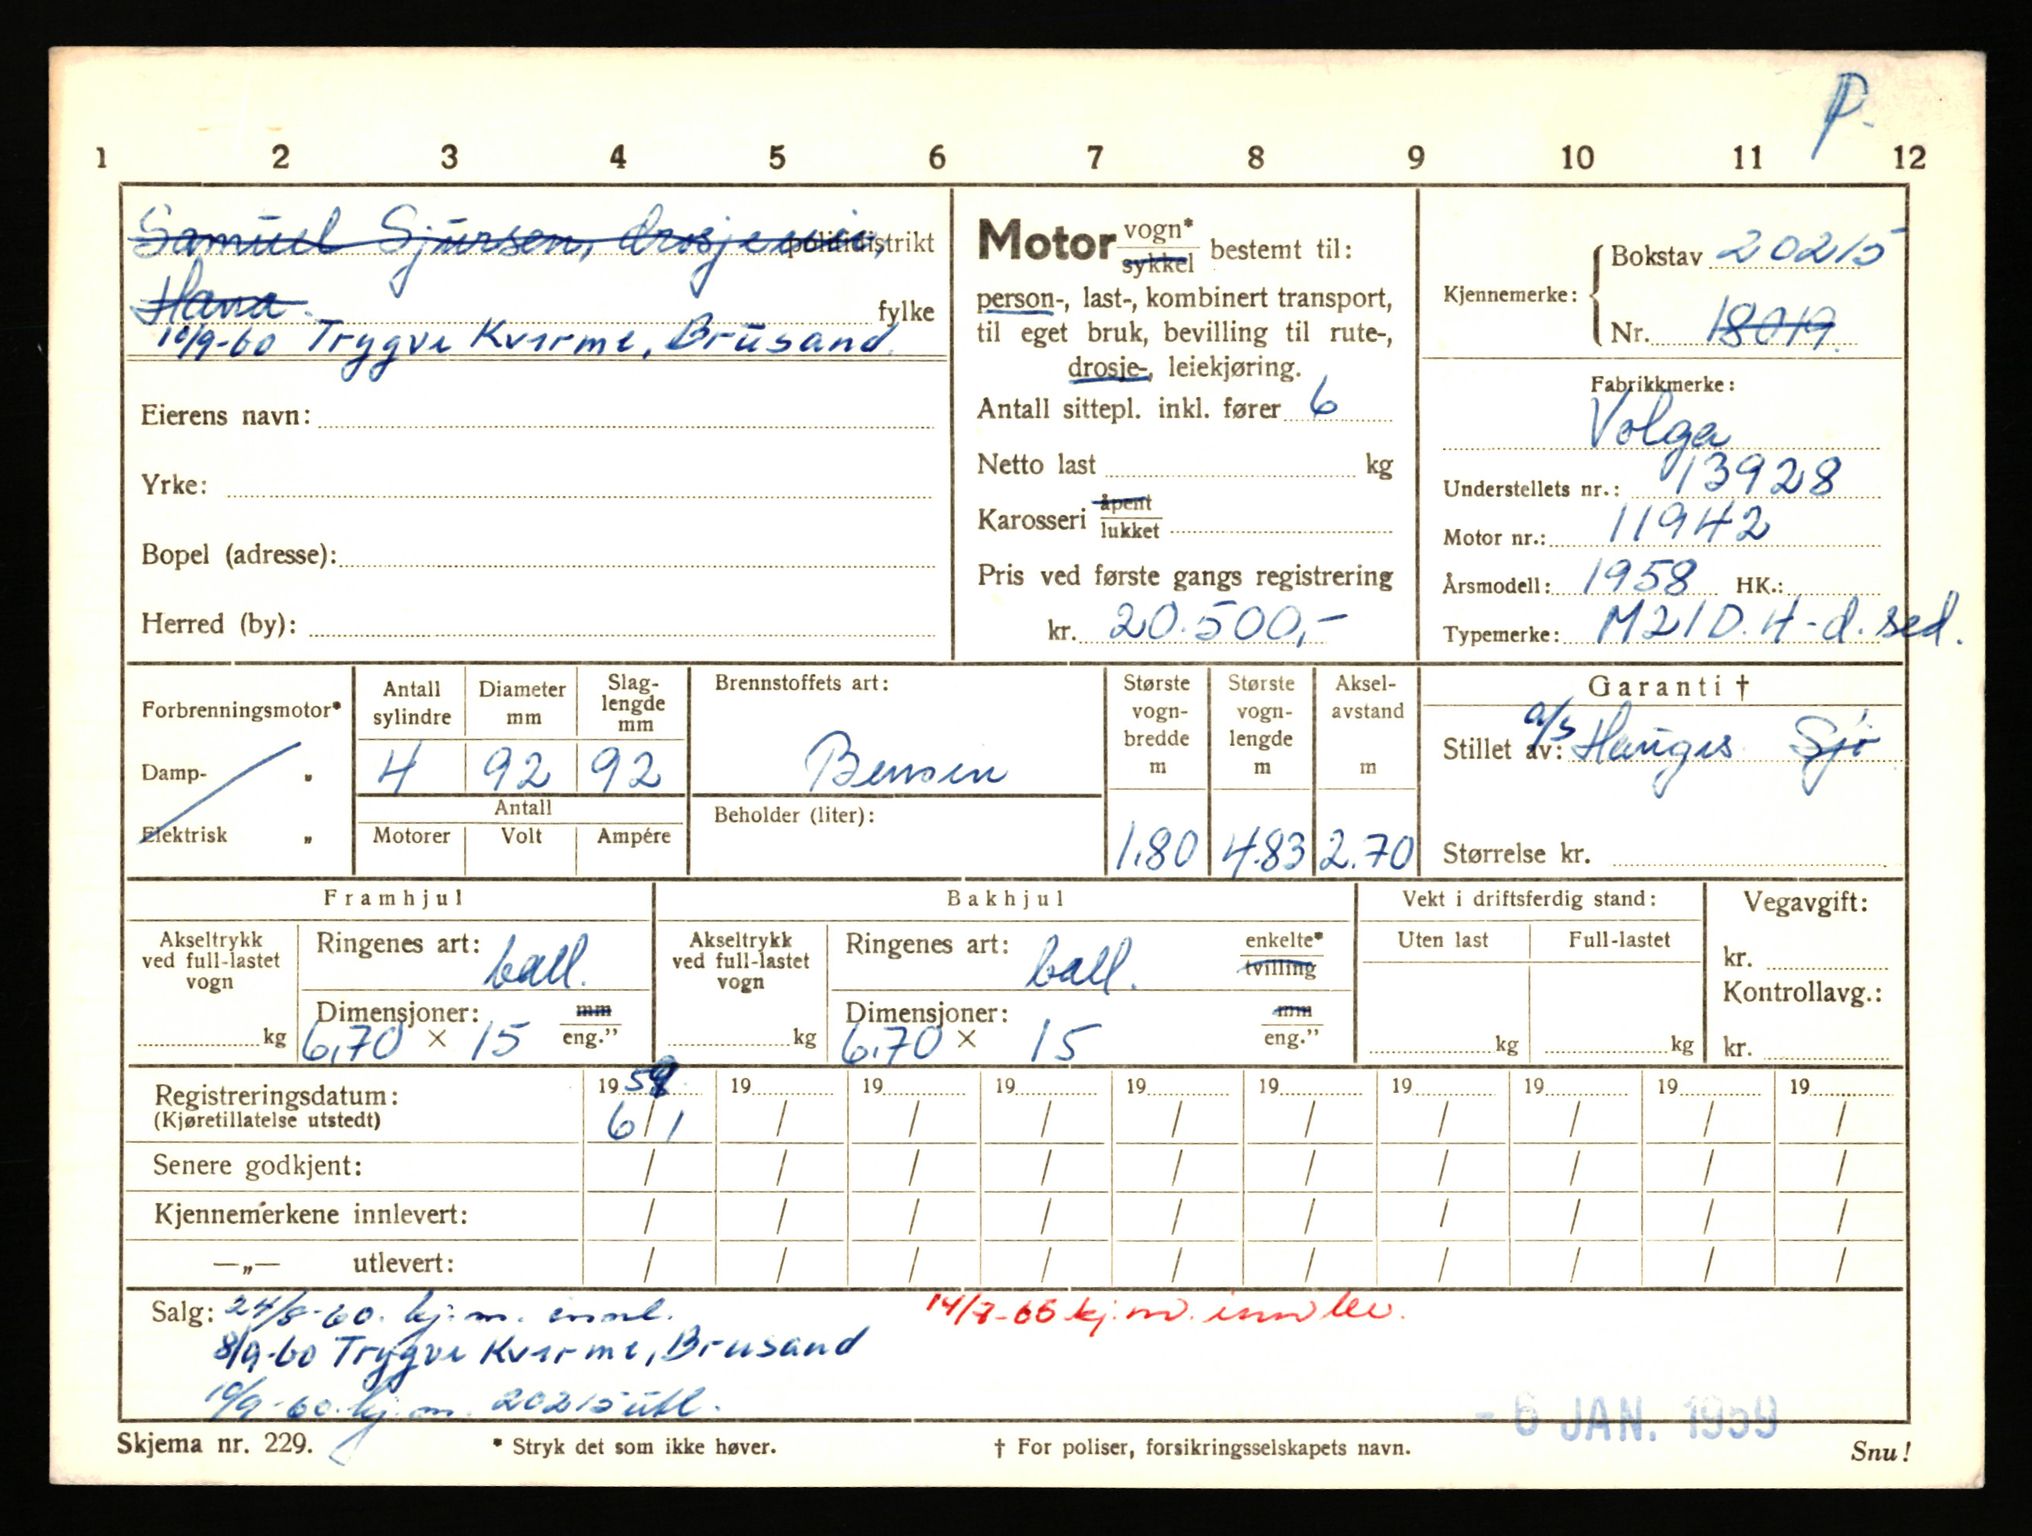 P.
1 2 3 4 5 6 7 8 9 10 11 12
Samuel Sjursen, drosjeeier, politidistrikt
Hana. fylke
10/9-60 Trygve Kverme, Brusand.
Eierens navn:
Yrke:
Bopel (adresse):
Herred (by):
Motor vogn* sykkel bestemt til:
person-, last-, kombinert transport,
til eget bruk, bevilling til rute-,
drosje-, leiekjøring.
Antall sittepl. inkl. fører 6
Netto last kg
Karosseri åpent lukket
Pris ved første gangs registrering
kr. 20.500,-
Kjennemerke: Bokstav 20215
Nr. 18019
Fabrikkmerke:
Volga
Understellets nr.: 13928
Motor nr.: 11942
Årsmodell: 1958 HK.:
Typemerke: M21D. 4-d. sed.
Forbrenningsmotor*
Damp- "
Elektrisk "
Antall sylindre Diameter mm Slag-lengde mm
4 92 92
Antall
Motorer Volt Ampére
Brennstoffets art:
Bensin
Beholder (liter):
Største vogn-bredde m Største vogn-lengde m Aksel-avstand m
1.80 4.83 2.70
Garanti †
Stillet av: a/s Hauges Sjø
Størrelse kr.
Framhjul
Akseltrykk ved full-lastet vogn
kg
Ringenes art: ball.
Dimensjoner: mm
6,70 × 15 eng."
Bakhjul
Akseltrykk ved full-lastet vogn
kg
Ringenes art: ball. enkelte* tvilling
Dimensjoner: mm
6.70 × 15 eng."
Vekt i driftsferdig stand:
Uten last Full-lastet
kg kg
Vegavgift:
kr.
Kontrollavg.:
kr.
Registreringsdatum: 1959 19 19 19 19 19 19 19 19 19
(Kjøretillatelse utstedt) 6/1 / / / / / / / / /
Senere godkjent: / / / / / / / / / /
Kjennemerkene innlevert: / / / / / / / / / /
—„— utlevert: / / / / / / / / / /
Salg: 24/8-60. kj.m. innl. 14/7-65 kj.m. innlev.
8/9-60 Trygve Kverme, Brusand
10/9-60. kj.m. 20215 utl.
- 6 JAN. 1959
Skjema nr. 229. * Stryk det som ikke høver. † For poliser, forsikringsselskapets navn. Snu!